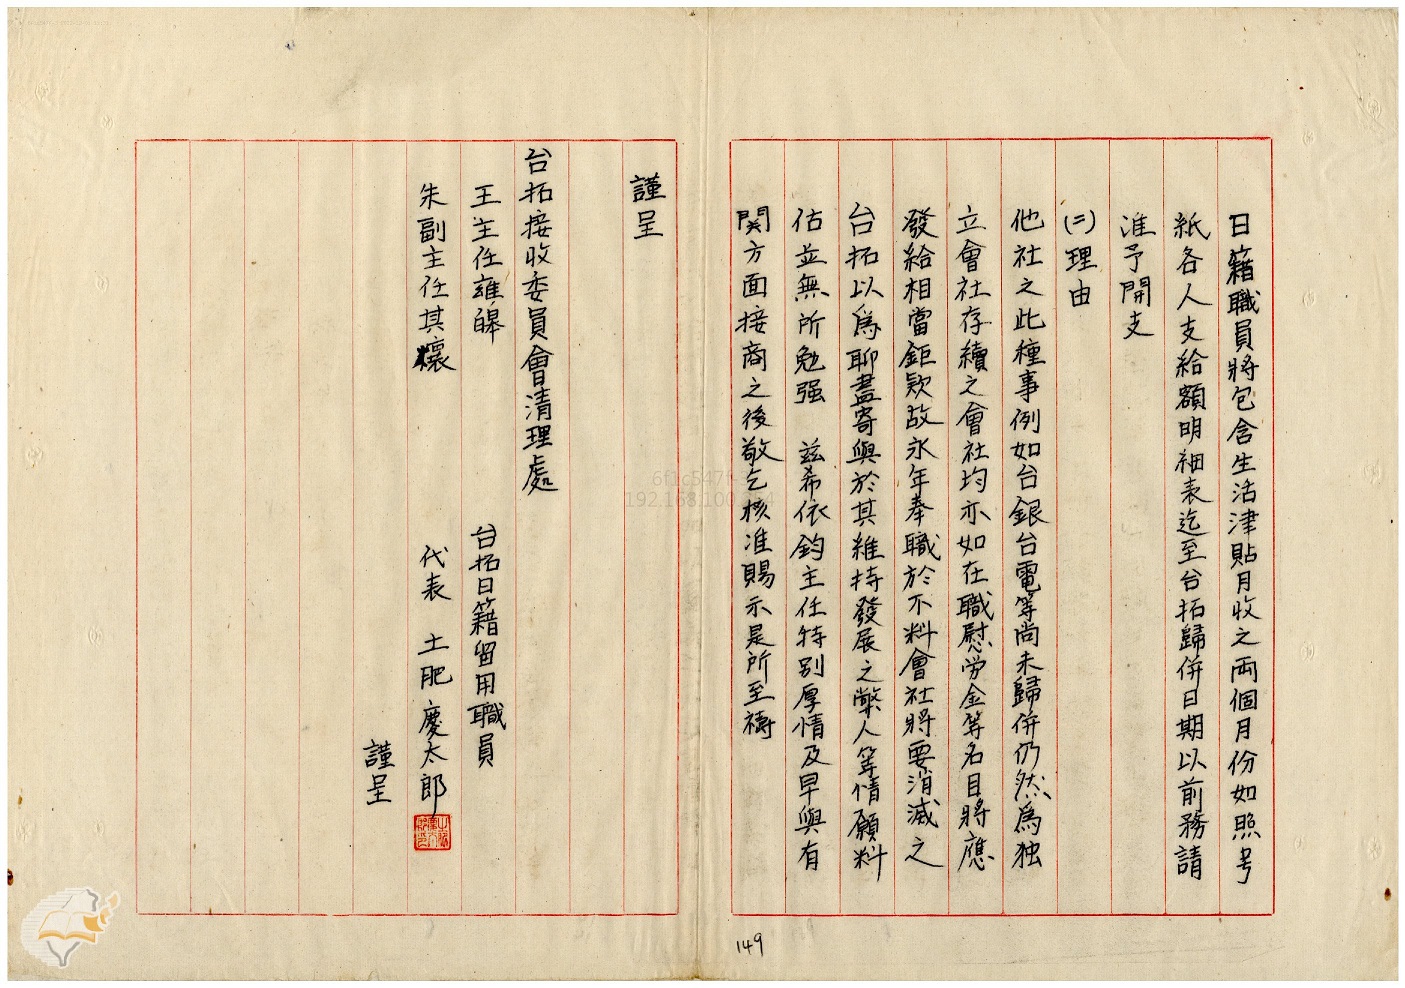 日籍職員將包含生活津貼月收之兩個月份如照号
紙各人支給額明細表迄至台拓歸併日期以前務請
准予開支
㈡理由
他社之此種事例如台銀台電等尚未歸併仍然為独
立會社存續之會社均亦如在職慰労金等名目將應
發給相當鉅款故永年奉職於不料會社將要消滅之
台拓以為聊盡寄與於其維持發展之幣人等情願料
估並無所勉强 茲希依鈞主任特別厚情及早與有
関方面接商之後敬乞核准賜示是所至禱
謹呈
台拓接收委員會清理處
王主任雍皞
朱副主任其懷
台拓日籍留用職員
代表 土肥慶太郎
謹呈
149
6f1c547f
192.168.100